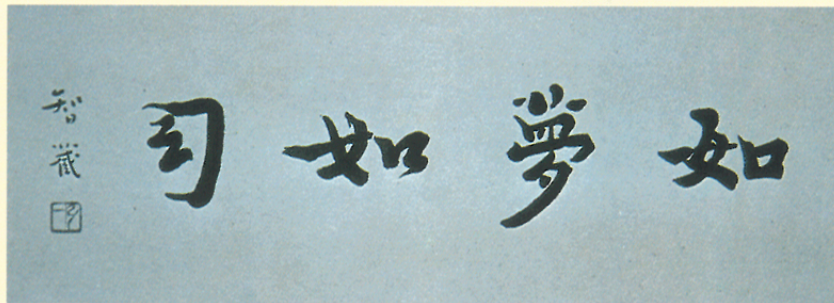 如夢如幻
智藏